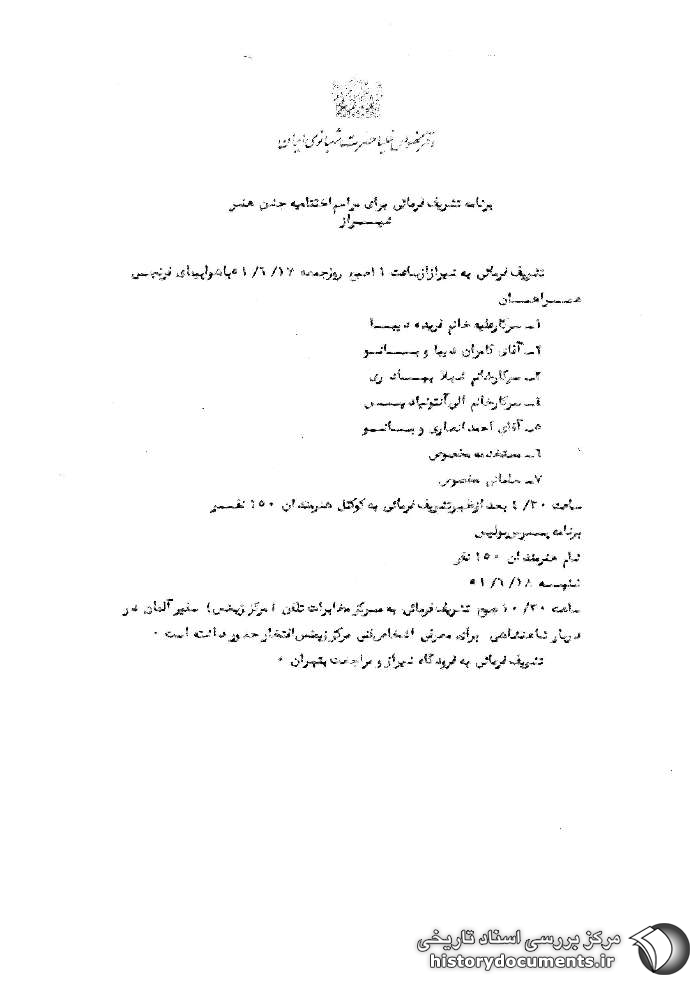 دفتر مخصوص علیاحضرت شهبانوی ایران
برنامه تشریف فرمائی برای مراسم اختتامیه جشن هنر
شیراز
تشریف فرمائی به شیراز از ساعت ۱۱ صبح روز جمعه ۱۷/ ۶/ ۵۱ با هواپیمای فرنچاس
همراهان
۱ـ سرکارعلیه خانم فریده دیبا
۲ـ آقای کامران دیبا و بانو
۳ـ سرکارخانم لیلا
۴ـ سرکارخانم الی آنتونیادیس
۵ـ آقای احمد انصاری و بانو
۶ـ مستخدمه مخصوص
۷ـ سلمانی مخصوص
ساعت ۳۰/ بعد از ظهر تشریف فرمائی به کوکتل هنرمندان ۱۵۰ نفر
برنامه پرسپولیس
شام هنرمندان ۱۵۰ نفر
شنبه ۱۸/ ۶/ ۵۱
ساعت ۳۰/ ۱۰ صبح تشریف فرمائی به مرکز مخابرات تلفن ( مرکز زیمنس) سفیر آلمان در
دربار شاهنشاهی برای معرفی اشخاص فنی مرکز زیمنس افتخار حضور داشته است ۰
تشریف فرمائی به فرودگاه شیراز و مراجعت بتهران ۰
مرکز بررسی اسناد تاریخی
historydocuments.ir